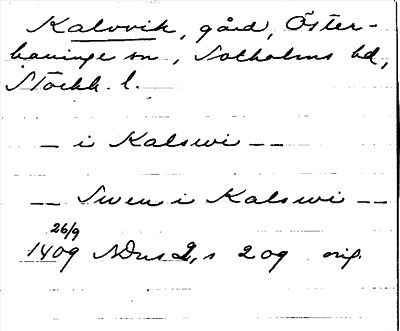 Kalvvik, gård, Öster-
haninge sn, Sotholms hd,
Stockh. l.
— i Kalswi — —
— — Swen i Kalswi — —
26/9
1409 NDns 2, s 209 orig.